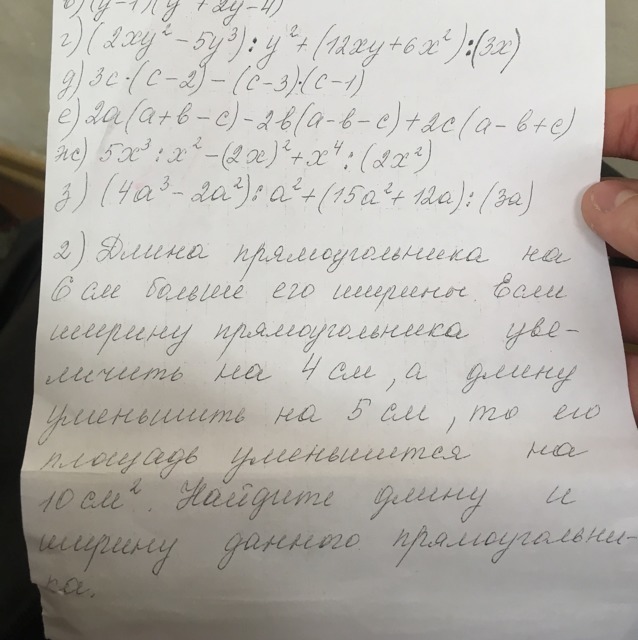 в) (y-1)(y²+2y-4)
г) (2xy²-5y³):y²+(12xy+6x²):(3x)
д) 3c·(c-2)-(c-3)·(c-1)
е) 2a(a+b-c)-2b(a-b-c)+2c(a-b+c)
ж) 5x³:x²-(2x)²+x⁴:(2x²)
з) (4a³-2a²):a²+(15a²+12a):(3a)
2) Длина прямоугольника на
6 см больше его ширины. Если
ширину прямоугольника уве-
личить на 4 см, а длину
уменьшить на 5 см, то его
площадь уменьшится на
10 см². Найдите длину и
ширину данного прямоугольни-
ка.